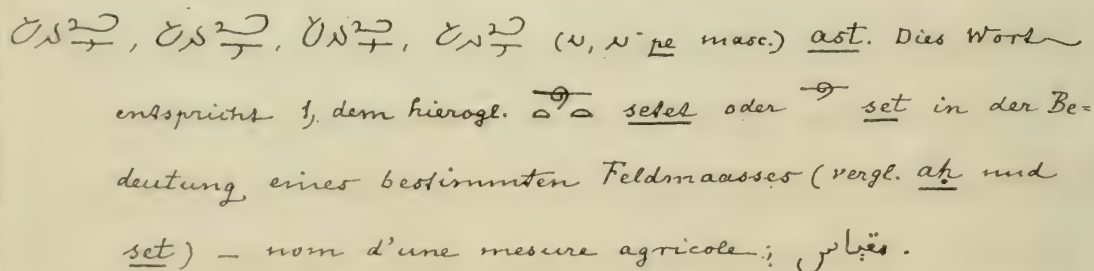 (𓅮, pe masc.) ast. Dies Wort
entspricht 1, dem hierogl. setet oder set in der Be=
deutung eines bestimmten Feldmaasses (vergl. aḥ und
set) – nom d'une mesure agricole; مقياس.